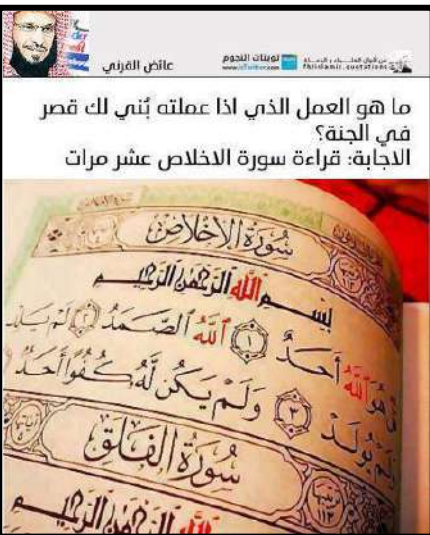 عائض القرني
تويتات النجوم
ما هو العمل الذي اذا عملته بُني لك قصر
في الجنة؟
الاجابة: قراءة سورة الاخلاص عشر مرات
سُورَةُ الإِخْلَاصِ
بِسْمِ اللَّهِ الرَّحْمَٰنِ الرَّحِيمِ
هُوَ اللَّهُ أَحَدٌ ١ اللَّهُ الصَّمَدُ ٢ لَمْ يَلِدْ
يُولَدْ ٣ وَلَمْ يَكُن لَّهُ كُفُوًا أَحَدٌ
سُورَةُ الفَلَقِ
اللَّهِ الرَّحْمَٰنِ الرَّحِيمِ